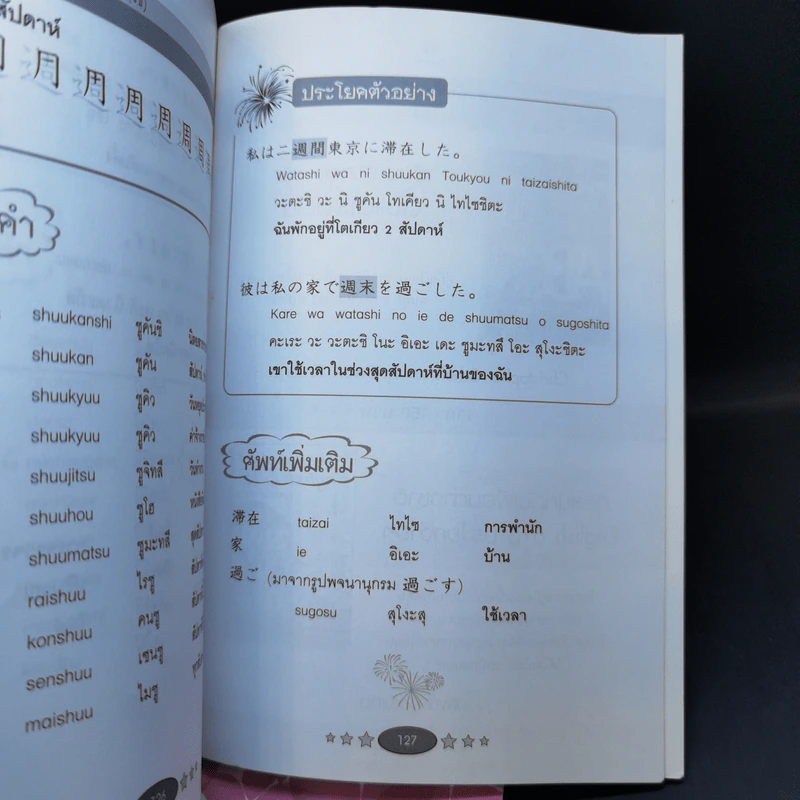 สัปดาห์
周 周 周 周 周 周
คำ
shuukanshi ชูคันชิ
shuukan ชูคัน
shuukyuu ชูคิว
shuukyuu ชูคิว
shuujitsu ชูจิทสึ
shuuhou ชูโฮ
shuumatsu ชูมะทสึ
raishuu ไรชู
konshuu คนชู
senshuu เซนชู
maishuu ไมชู
ประโยคตัวอย่าง
私は二週間東京に滞在した。
Watashi wa ni shuukan Toukyou ni taizaishita
วะตะชิ วะ นิ ชูคัน โทเคียว นิ ไทไซชิตะ
ฉันพักอยู่ที่โตเกียว 2 สัปดาห์
彼は私の家で週末を過ごした。
Kare wa watashi no ie de shuumatsu o sugoshita
คะเระ วะ วะตะชิ โนะ อิเอะ เดะ ชูมะทสึ โอะ สุโงะชิตะ
เขาใช้เวลาในช่วงสุดสัปดาห์ที่บ้านของฉัน
ศัพท์เพิ่มเติม
滞在 taizai ไทไซ การพำนัก
家 ie อิเอะ บ้าน
過ご (มาจากรูปพจนานุกรม 過ごす)
sugosu สุโงะสุ ใช้เวลา
127